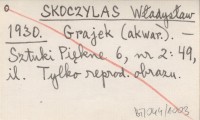 SKOCZYLAS Władysław
1930. Grajek (akwar.). —
Sztuki Piękne 6, nr 2: 49,
il. Tylko reprod. obrazu.
bj044/2003